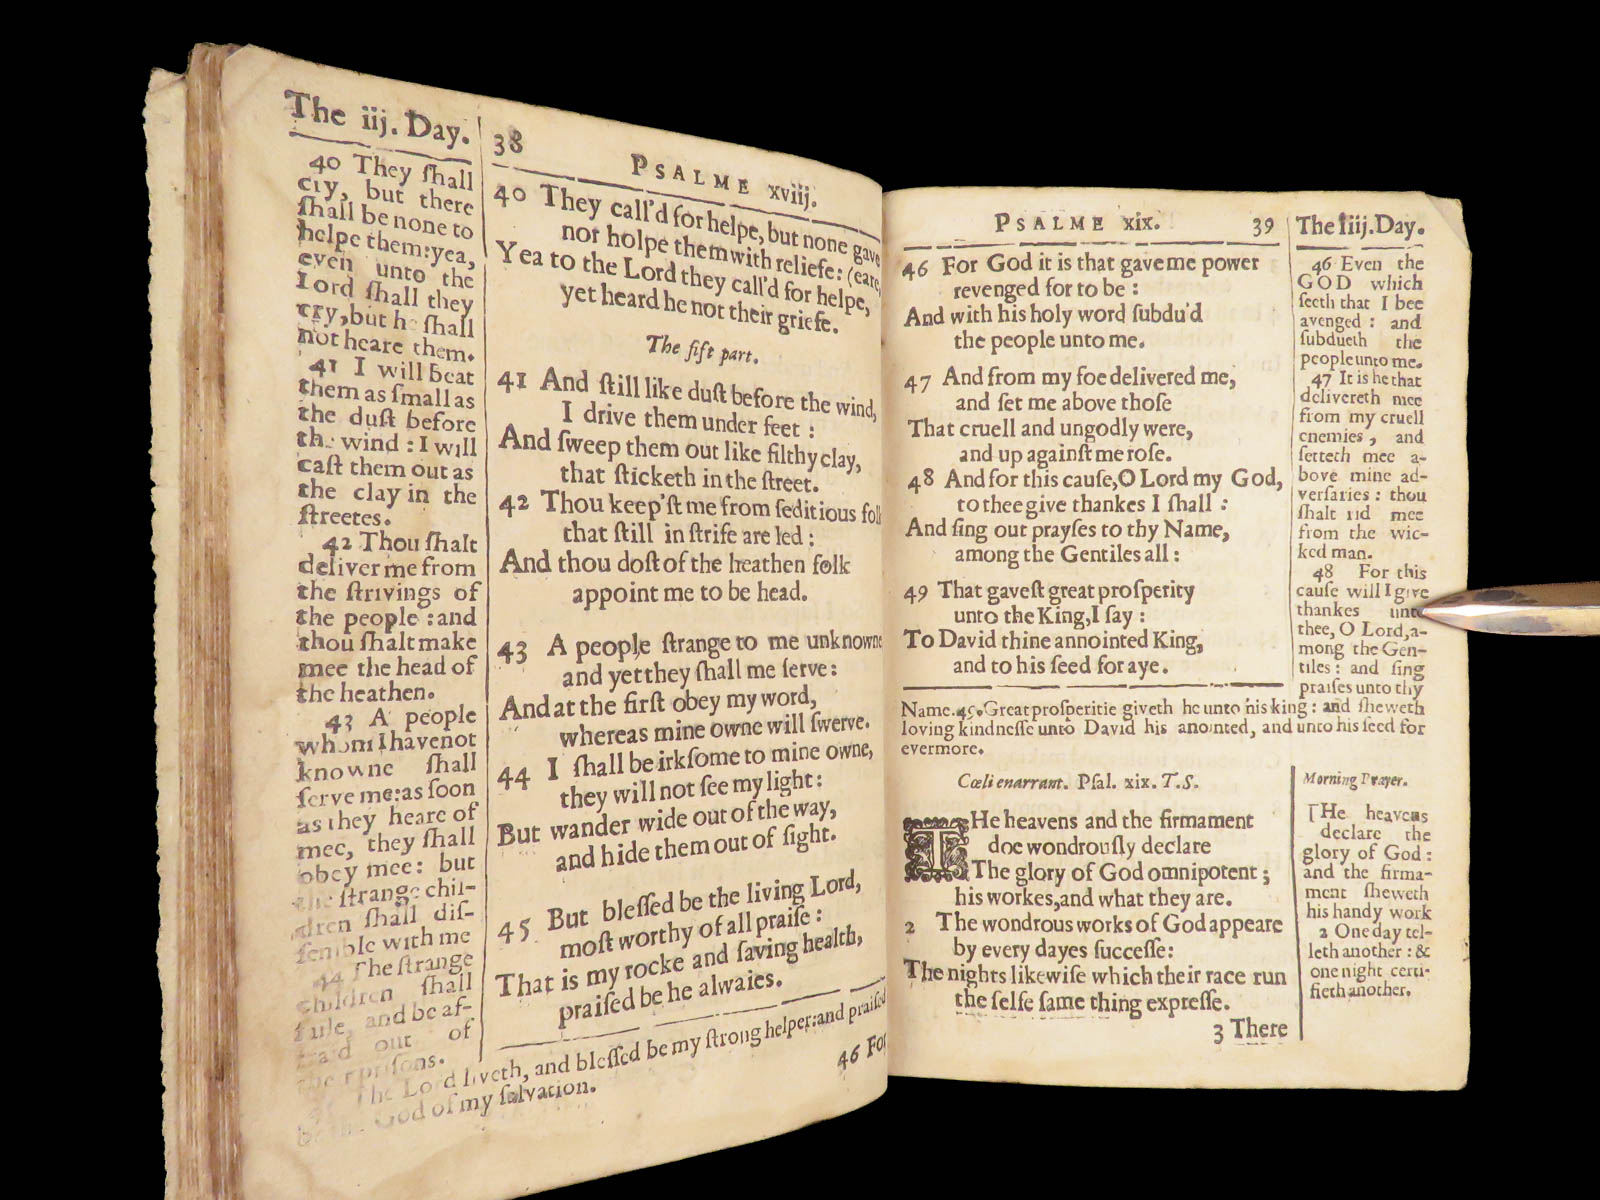 The iij. Day.
40 They ſhall
cry, but there
ſhall be none to
helpe them: yea,
even unto the
Lord ſhall they
cry, but he ſhall
not heare them.
41 I will beat
them as ſmall as
the duſt before
the wind : I will
caſt them out as
the clay in the
ſtreetes.
42 Thou ſhalt
deliver me from
the ſtrivings of
the people : and
thou ſhalt make
mee the head of
the heathen.
43 A people
whom I have not
knowne ſhall
ſerve me: as ſoon
as they heare of
mee, they ſhall
obey mee: but
the ſtrange chil-
dren ſhall diſ-
ſemble with me
44 The ſtrange
children ſhall
faile, and be af-
raid out of
their priſons.
The Lord liveth, and bleſſed be my ſtrong helper: and praiſed
God of my ſalvation.
38
PSALME xviij.
40 They call'd for helpe, but none gave
nor holpe them with reliefe: (eare,
Yea to the Lord they call'd for helpe,
yet heard he not their griefe.
The fift part.
41 And ſtill like duſt before the wind,
I drive them under feet :
And ſweep them out like filthy clay,
that ſticketh in the ſtreet.
42 Thou keep'ſt me from ſeditious fol
that ſtill in ſtrife are led :
And thou doſt of the heathen folk
appoint me to be head.
43 A people ſtrange to me unknowne
and yet they ſhall me ſerve:
And at the firſt obey my word,
whereas mine owne will ſwerve.
44 I ſhall be irkſome to mine owne,
they will not ſee my light:
But wander wide out of the way,
and hide them out of ſight.
45 But bleſſed be the living Lord,
moſt worthy of all praiſe :
That is my rocke and ſaving health,
praiſed be he alwaies.
46 For
PSALME xix.
39
46 For God it is that gave me power
revenged for to be :
And with his holy word ſubdu'd
the people unto me.
47 And from my foe delivered me,
and ſet me above thoſe
That cruell and ungodly were,
and up againſt me roſe.
48 And for this cauſe, O Lord my God,
to thee give thankes I ſhall :
And ſing out prayſes to thy Name,
among the Gentiles all :
49 That gaveſt great proſperity
unto the King, I ſay :
To David thine annointed King,
and to his ſeed for aye.
The Iiij. Day.
46 Even the
GOD which
ſeeth that I bee
avenged : and
ſubdueth the
people unto me.
47 It is he that
delivereth mee
from my cruell
enemies, and
ſetteth mee a-
bove mine ad-
verſaries : thou
ſhalt rid mee
from the wic-
ked man.
48 For this
cauſe will I give
thankes unto
thee, O Lord, a-
mong the Gen-
tiles : and ſing
praiſes unto thy
Name. 45. Great proſperitie giveth he unto his king : and ſheweth
loving kindneſſe unto David his anointed, and unto his ſeed for
evermore.
Cœli enarrant. Pſal. xix. T. S.
THe heavens and the firmament
doe wondrouſly declare
The glory of God omnipotent ;
his workes, and what they are.
2 The wondrous works of God appeare
by every dayes ſucceſſe:
The nights likewiſe which their race run
the ſelfe ſame thing expreſſe.
3 There
Morning Prayer.
THe heavens
declare the
glory of God :
and the firma-
ment ſheweth
his handy work
2 One day tel-
leth another : &
one night certi-
fieth another.